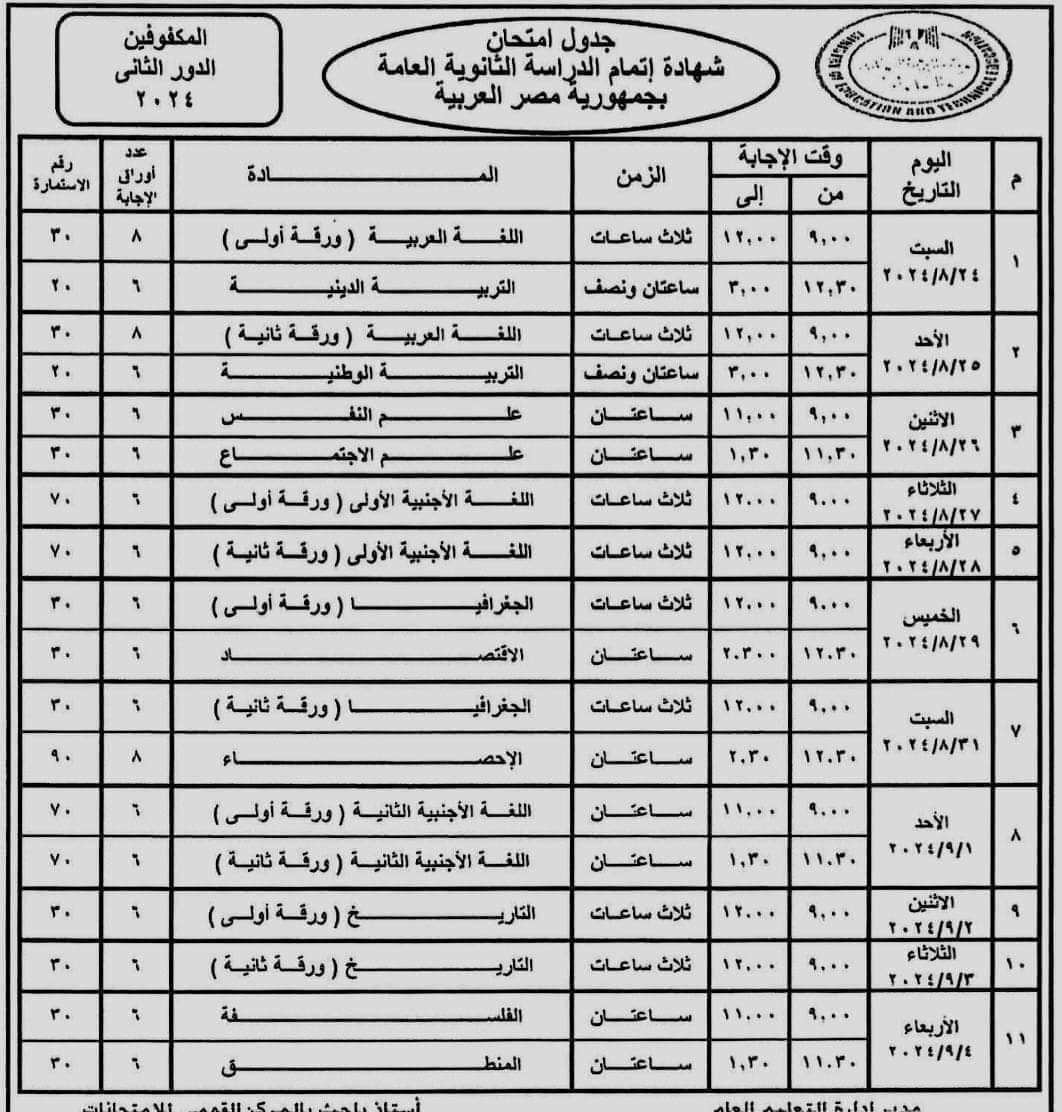 جدول امتحان
شهادة إتمام الدراسة الثانوية العامة
بجمهورية مصر العربية
المكفوفين
الدور الثانى
٢٠٢٤
EDUCATION AND TECHNICAL
م | اليوم التاريخ | وقت الإجابة من | إلى | الزمن | المادة | عدد أوراق الإجابة | رقم الاستمارة
١ | السبت ٢٠٢٤/٨/٢٤ | ٩,٠٠ | ١٢,٠٠ | ثلاث ساعات | اللغة العربية ( ورقة أولى ) | ٨ | ٣٠
١٢,٣٠ | ٣,٠٠ | ساعتان ونصف | التربية الدينية | ٦ | ٢٠
٢ | الأحد ٢٠٢٤/٨/٢٥ | ٩,٠٠ | ١٢,٠٠ | ثلاث ساعات | اللغة العربية ( ورقة ثانية ) | ٨ | ٣٠
١٢,٣٠ | ٣,٠٠ | ساعتان ونصف | التربية الوطنية | ٦ | ٢٠
٣ | الاثنين ٢٠٢٤/٨/٢٦ | ٩,٠٠ | ١١,٠٠ | ساعتان | علم النفس | ٦ | ٣٠
١١,٣٠ | ١,٣٠ | ساعتان | علم الاجتماع | ٦ | ٣٠
٤ | الثلاثاء ٢٠٢٤/٨/٢٧ | ٩,٠٠ | ١٢,٠٠ | ثلاث ساعات | اللغة الأجنبية الأولى ( ورقة أولى ) | ٦ | ٧٠
٥ | الأربعاء ٢٠٢٤/٨/٢٨ | ٩,٠٠ | ١٢,٠٠ | ثلاث ساعات | اللغة الأجنبية الأولى ( ورقة ثانية ) | ٦ | ٧٠
٦ | الخميس ٢٠٢٤/٨/٢٩ | ٩,٠٠ | ١٢,٠٠ | ثلاث ساعات | الجغرافيا ( ورقة أولى ) | ٦ | ٣٠
١٢,٣٠ | ٢,٣٠٠ | ساعتان | الاقتصاد | ٦ | ٣٠
٧ | السبت ٢٠٢٤/٨/٣١ | ٩,٠٠ | ١٢,٠٠ | ثلاث ساعات | الجغرافيا ( ورقة ثانية ) | ٦ | ٣٠
١٢,٣٠ | ٢,٣٠ | ساعتان | الإحصاء | ٨ | ٩٠
٨ | الأحد ٢٠٢٤/٩/١ | ٩,٠٠ | ١١,٠٠ | ساعتان | اللغة الأجنبية الثانية ( ورقة أولى ) | ٦ | ٧٠
١١,٣٠ | ١,٣٠ | ساعتان | اللغة الأجنبية الثانية ( ورقة ثانية ) | ٦ | ٧٠
٩ | الاثنين ٢٠٢٤/٩/٢ | ٩,٠٠ | ١٢,٠٠ | ثلاث ساعات | التاريخ ( ورقة أولى ) | ٦ | ٣٠
١٠ | الثلاثاء ٢٠٢٤/٩/٣ | ٩,٠٠ | ١٢,٠٠ | ثلاث ساعات | التاريخ ( ورقة ثانية ) | ٦ | ٣٠
١١ | الأربعاء ٢٠٢٤/٩/٤ | ٩,٠٠ | ١١,٠٠ | ساعتان | الفلسفة | ٦ | ٣٠
١١,٣٠ | ١,٣٠ | ساعتان | المنطق | ٦ | ٣٠
مدير إدارة التعليم العام
أستاذ باحث بالمركز القومى للامتحانات